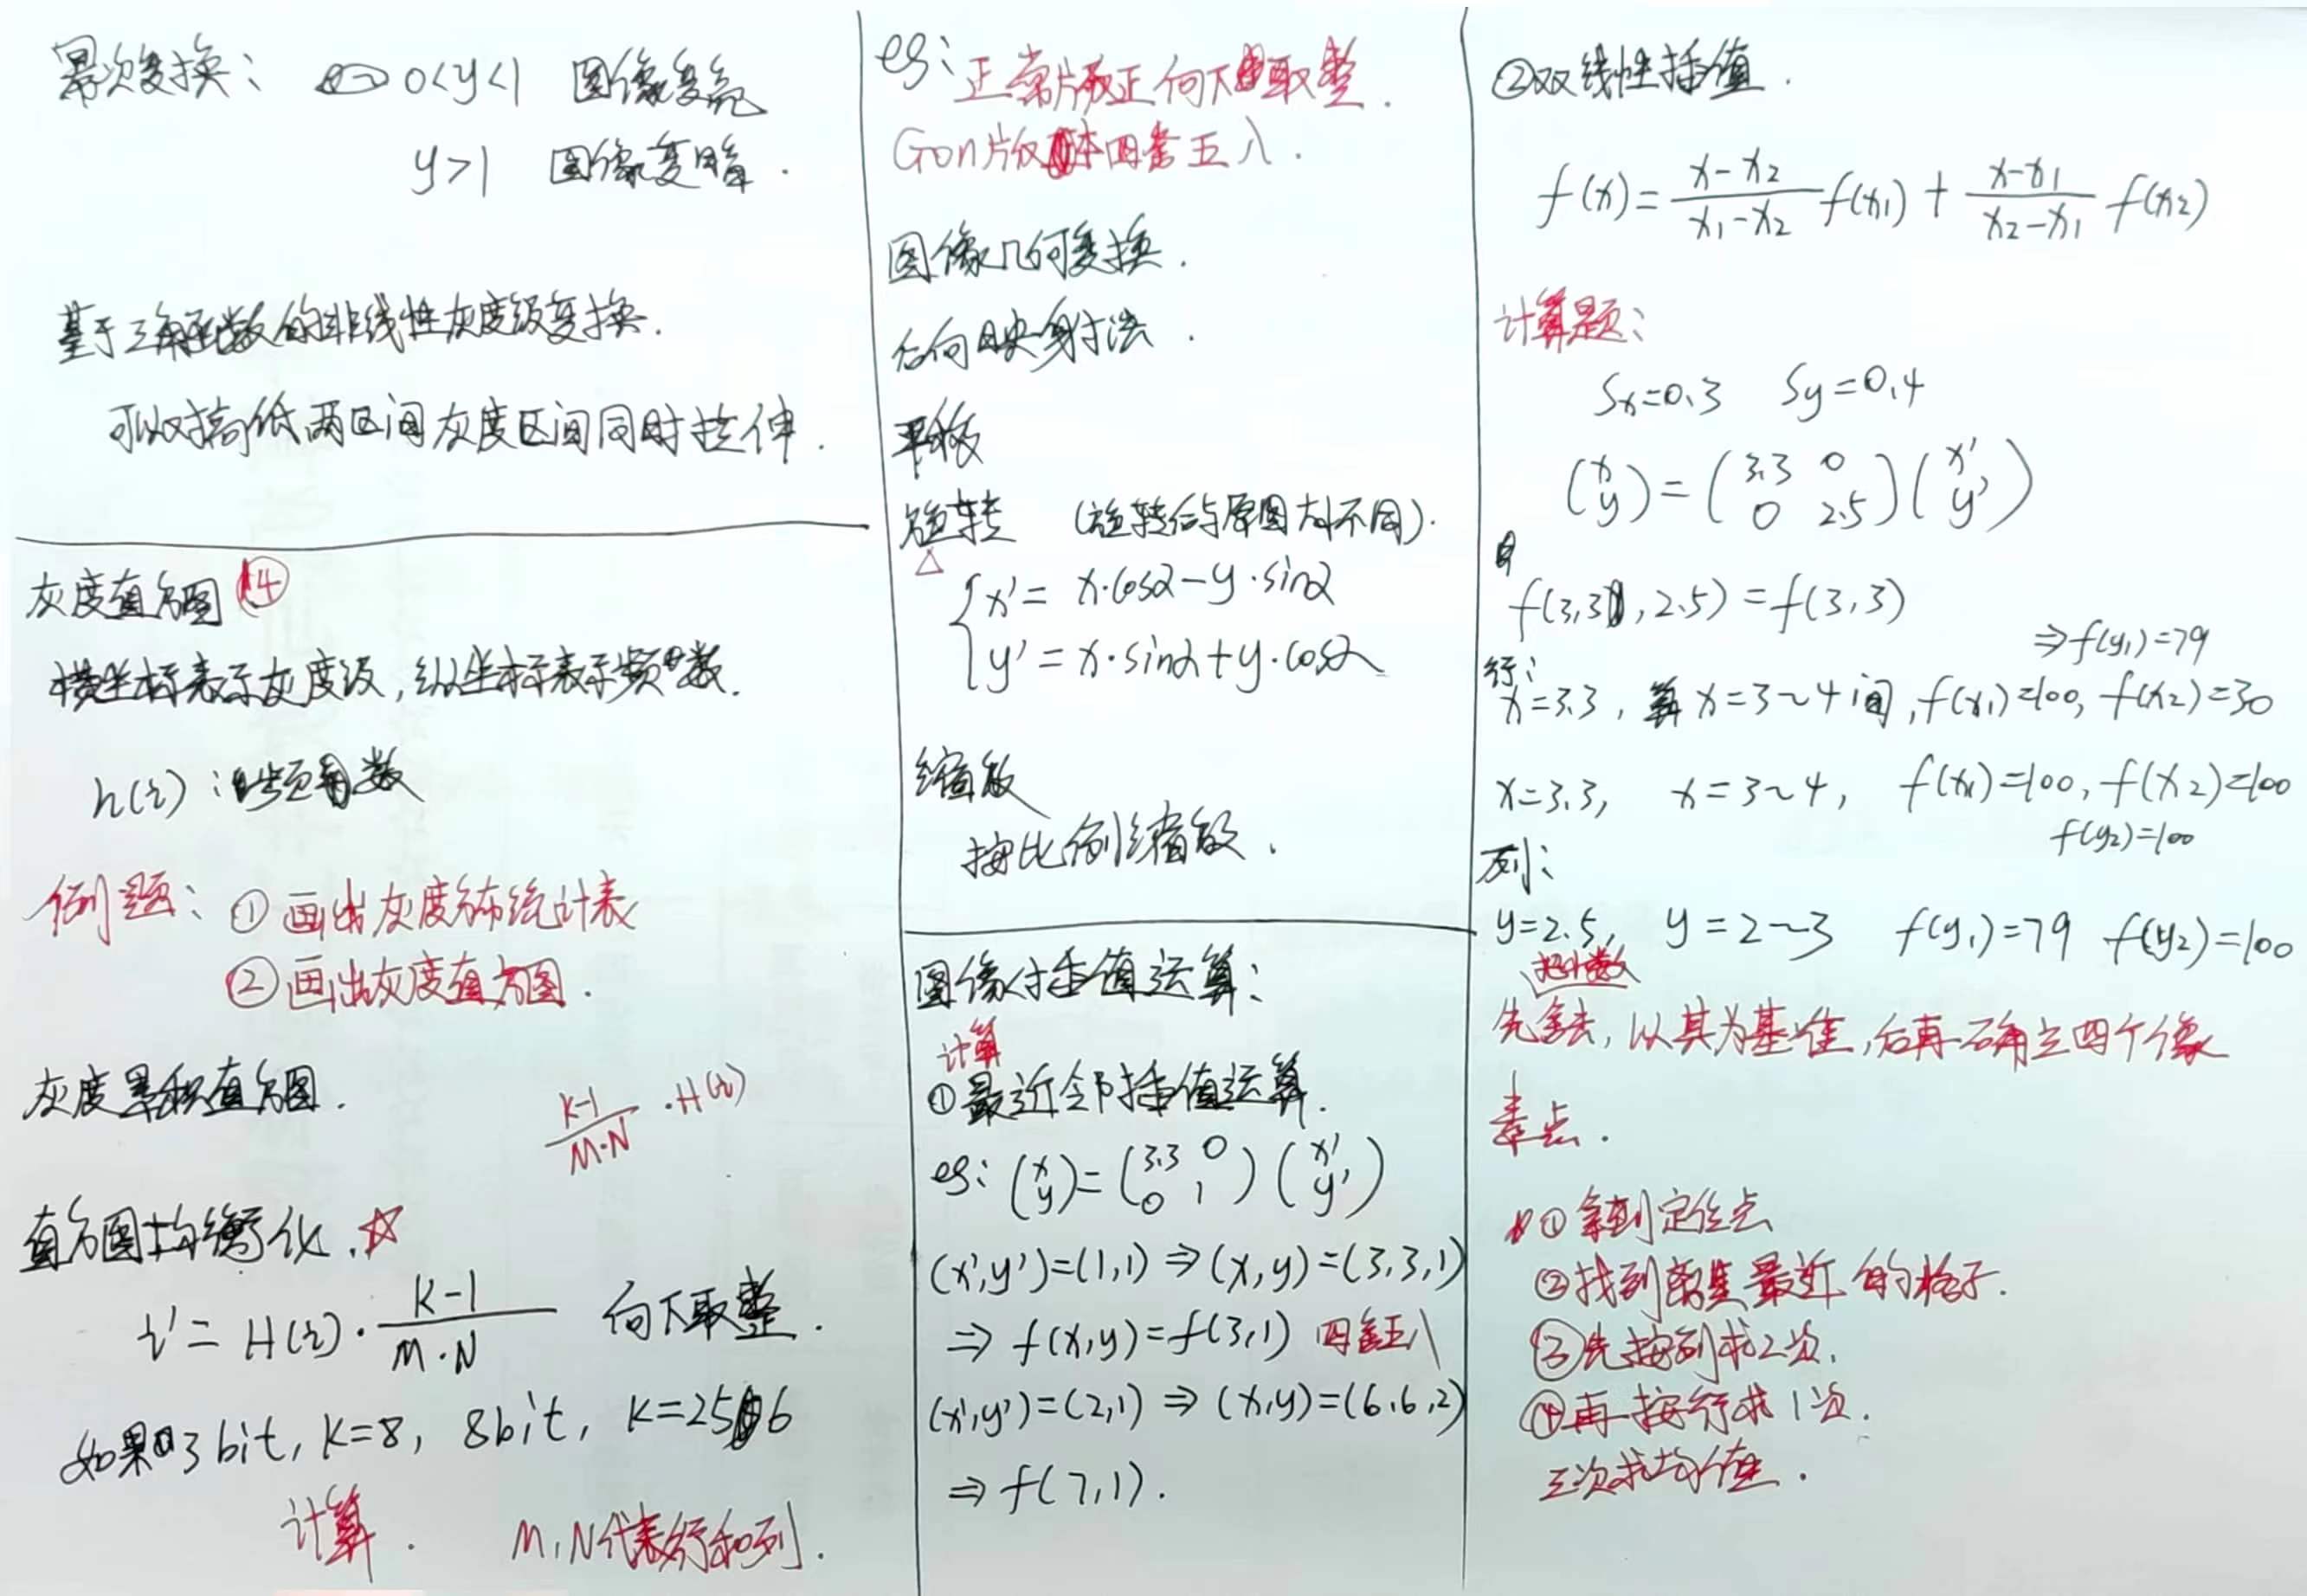 幂次变换： 0<y<1 图像变亮
y>1 图像变暗．
基于三角函数的非线性灰度级变换．
可以对高低两区间灰度区间同时拉伸．
灰度直方图 14
横坐标表示灰度级，纵坐标表示频数．
h(r)：频数
例题：① 画出灰度分布统计表
② 画出灰度直方图．
灰度累积直方图．
K-1/M·N ·H(r)
直方图均衡化．☆
r' = H(r)·K-1/M·N 向下取整．
如果3bit, K=8, 8bit, K=256
计算． M,N代表行和列．
eg：正常版正向下取整．
Gon版本四舍五入．
图像几何变换．
后向映射法．
平移
旋转 （旋转后与原图大小不同）．
△
x' = x·cosα-y·sinα
y' = x·sinα+y·cosα
缩放
按比例缩放．
图像插值运算：
计算
①最近邻插值运算．
eg: (x y) = (3.3 0 0 1) (x' y')
(x',y')=(1,1) ⇒ (x,y)=(3.3,1)
⇒ f(x,y)=f(3,1) 四舍五入
(x',y')=(2,1) ⇒ (x,y)=(6.6,2)
⇒ f(7,1).
②双线性插值．
f(x)= x-x2/x1-x2 f(x1) + x-x1/x2-x1 f(x2)
计算题：
Sx=0.3 Sy=0.4
(x y) = (3.3 0 0 2.5) (x' y')
f(3.3, 2.5) = f(3,3)
⇒f(y1)=79
行：
x=3.3, 算 x=3~4间, f(x1)=100, f(x2)=30
x=3.3, x=3~4, f(x1)=100, f(x2)=100
f(y2)=100
列：
y=2.5, y=2~3 f(y1)=79 f(y2)=100
把小数
先舍去，以其为基准，后再确立四个像
素点．
① 拿到定位点
②找到离其最近的格子．
③先按列求2次．
④再按行求1次．
三次求均值．